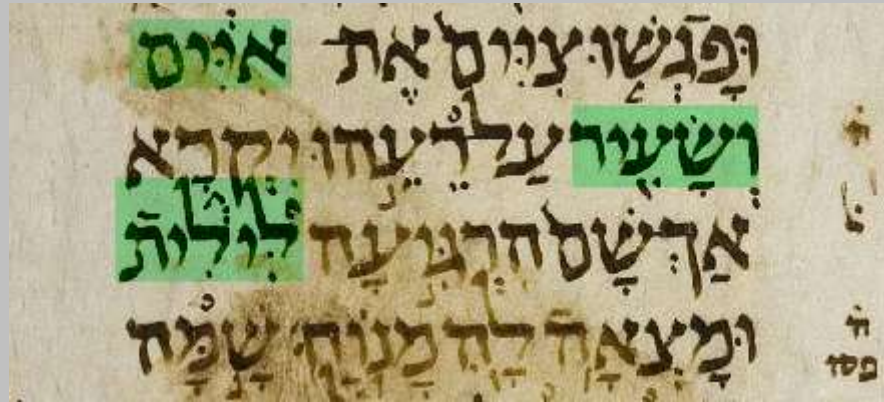 וּפָגְשׁוּ צִיִּים אֶת אִיִּים
וְשָׂעִיר עַל רֵעֵהוּ יִקְרָא
אַךְ שָׁם הִרְגִּיעָה לִּילִית
וּמָצְאָה לָהּ מָנוֹחַ׃ שָׁמָּה